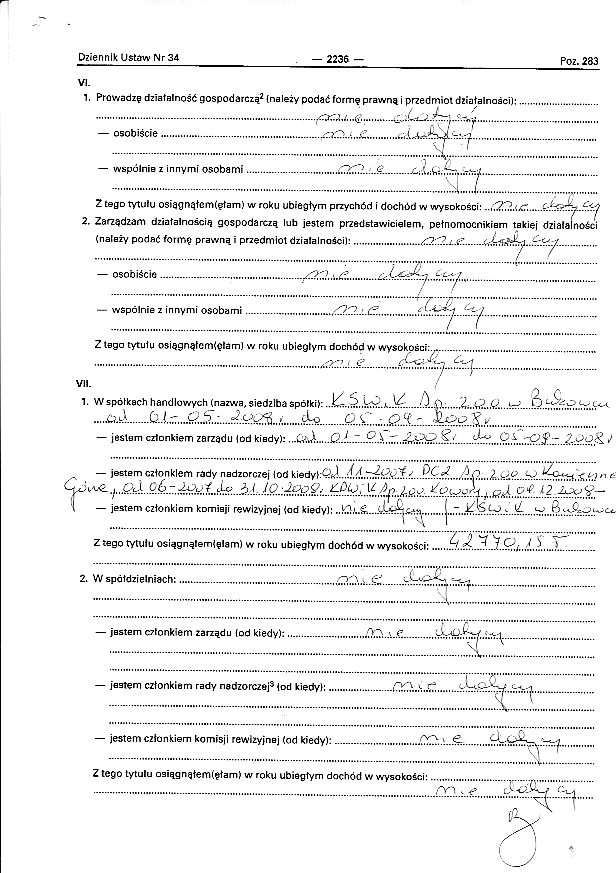 Dziennik Ustaw Nr 34 — 2236 — Poz. 283
VI.
1. Prowadzę działalność gospodarczą² (należy podać formę prawną i przedmiot działalności):
nie dotyczy
— osobiście nie dotyczy
— wspólnie z innymi osobami nie dotyczy
Z tego tytułu osiągnąłem(ęłam) w roku ubiegłym przychód i dochód w wysokości: nie dotyczy
2. Zarządzam działalnością gospodarczą lub jestem przedstawicielem, pełnomocnikiem takiej działalności
(należy podać formę prawną i przedmiot działalności): nie dotyczy
— osobiście nie dotyczy
— wspólnie z innymi osobami nie dotyczy
Z tego tytułu osiągnąłem(ęłam) w roku ubiegłym dochód w wysokości:
nie dotyczy
VII.
1. W spółkach handlowych (nazwa, siedziba spółki): KSW i K Sp. z o.o w Bukowcu
od 01-05-2008r do 05-09-2008r
— jestem członkiem zarządu (od kiedy): od 01-05-2008r do 05-09-2008r
— jestem członkiem rady nadzorczej (od kiedy): od 11-2007r Sp. z o.o w
Górne, od 06-2007 do 31.10.2008r Sp. z o.o Kowary, od 09.12.2008-
— jestem członkiem komisji rewizyjnej (od kiedy): nie dotyczy - KSW i K w Bukowcu
Z tego tytułu osiągnąłem(ęłam) w roku ubiegłym dochód w wysokości: 42770,15
2. W spółdzielniach: nie dotyczy
— jestem członkiem zarządu (od kiedy): nie dotyczy
— jestem członkiem rady nadzorczej³ (od kiedy): nie dotyczy
— jestem członkiem komisji rewizyjnej (od kiedy): nie dotyczy
Z tego tytułu osiągnąłem(ęłam) w roku ubiegłym dochód w wysokości:
nie dotyczy